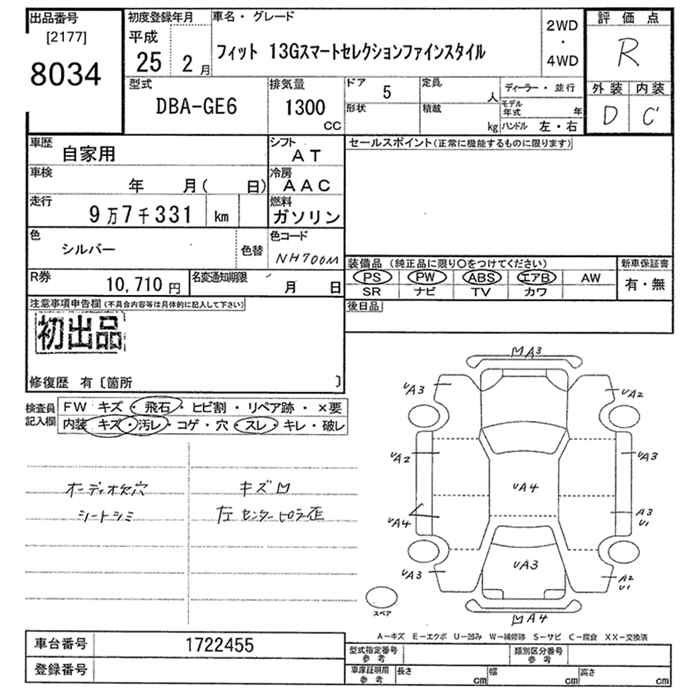 出品番号
[2177]
8034
初度登録年月
平成
25 2 月
車名・グレード
フィット 13Gスマートセレクションファインスタイル
2WD
・
4WD
評価点
R
外装 内装
D C
型式
DBA-GE6
排気量
1300
CC
ドア
5
形状
定員
人
積載
kg
ディーラー・並行
モデル年式 年
ハンドル 左・右
車歴
自家用
シフト
AT
車検
年 月( 日)
冷房
AAC
走行
9万7千331 km
燃料
ガソリン
色
シルバー
色替
色コード
NH700M
R券
10,710 円
名変通知期限
月 日
セールスポイント(正常に機能するものに限ります)
装備品(純正品に限り○をつけてください)
PS PW ABS エアB AW
SR ナビ TV カワ
新車保証書
有・無
後日品
注意事項申告欄(不具合内容等は具体的に記入して下さい)
初出品
修復歴 有〔箇所 〕
検査員記入欄
FW キズ・飛石・ヒビ割・リペア跡・×要
内装 キズ・汚レ・コゲ・穴・スレ・キレ・破レ
オーディオ欠穴
キズ凹
シートシミ
左センターピラー歪
A3
UA3
UA2
UA2
UA3
UA4
UA4
A3
U1
UA3
UA3
A2
U1
A4
スペア
A-キズ E-エクボ U-凹み W-補修跡 S-サビ C-腐食 XX-交換済
車台番号
1722455
登録番号
型式指定番号
参考
類別区分番号
参考
車庫証明用
参考
長さ cm
幅 cm
高さ cm